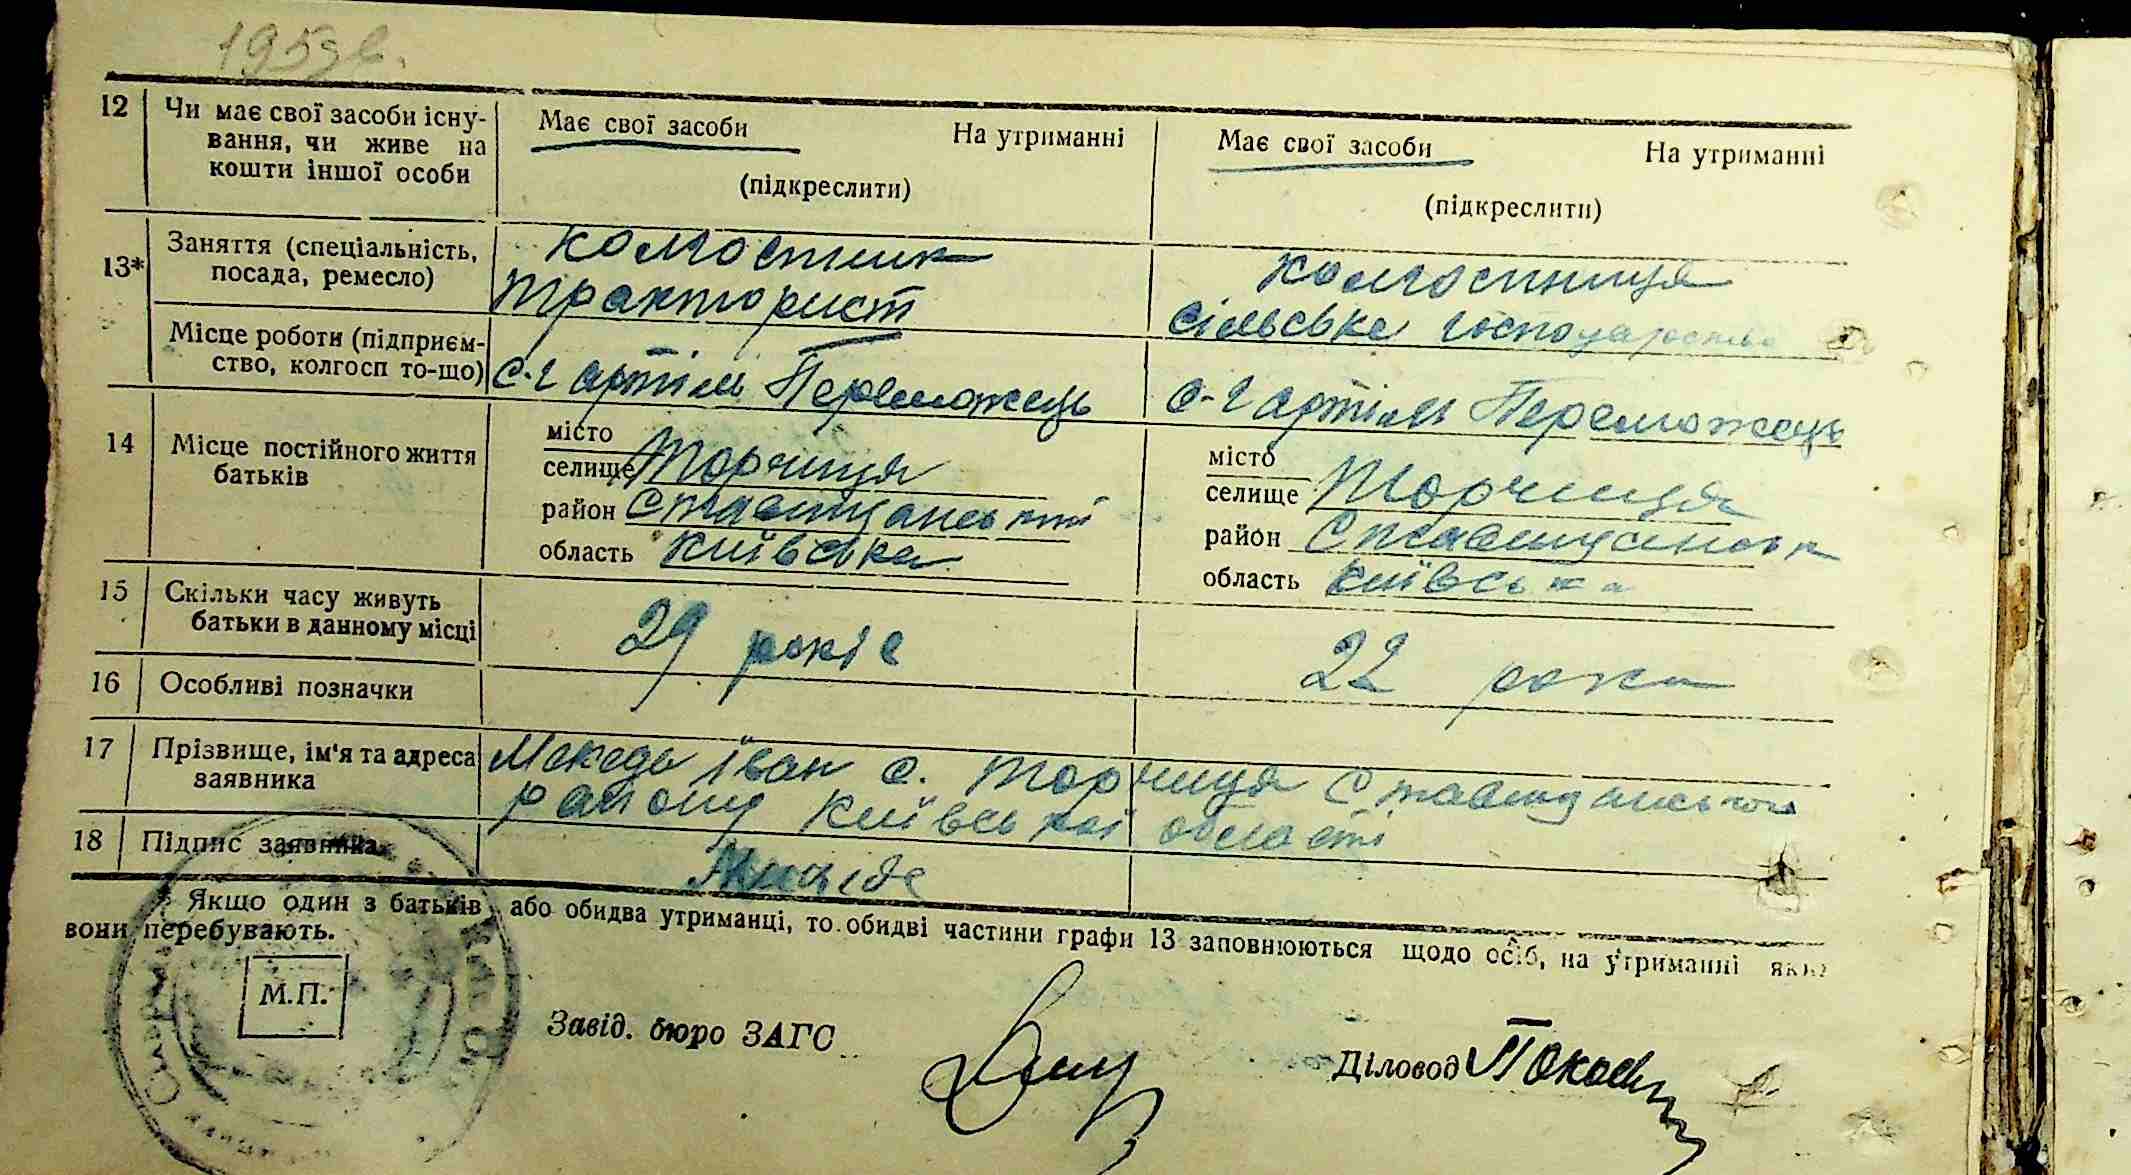 195
12 Чи має свої засоби існу-
вання, чи живе на
кошти іншої особи
Має свої засоби На утриманні
(підкреслити)
Має свої засоби На утриманні
(підкреслити)
13* Заняття (спеціальність,
посада, ремесло)
колгостник
тракторист
колгостниця
сільське господарство
Місце роботи (підприєм-
ство, колгосп то-що)
с-г артіль Переможець
с-г артіль Переможець
14 Місце постійного життя
батьків
місто
селище Торчиця
район Ставищанський
область київська
місто
селище Торчиця
район Ставищанськ
область київська
15 Скільки часу живуть
батьки в данному місці
29 років
22 роки
16 Особливі позначки
17 Прізвище, ім'я та адреса
заявника
Іван с. Торчиця Ставищанського
району київської області
18 Підпис заявника
Якщо один з батьків, або обидва утриманці, то обидві частини графи 13 заповнюються щодо осіб, на утриманні яких
вони перебувають.
М.П.
Завід. бюро ЗАГС
Діловод